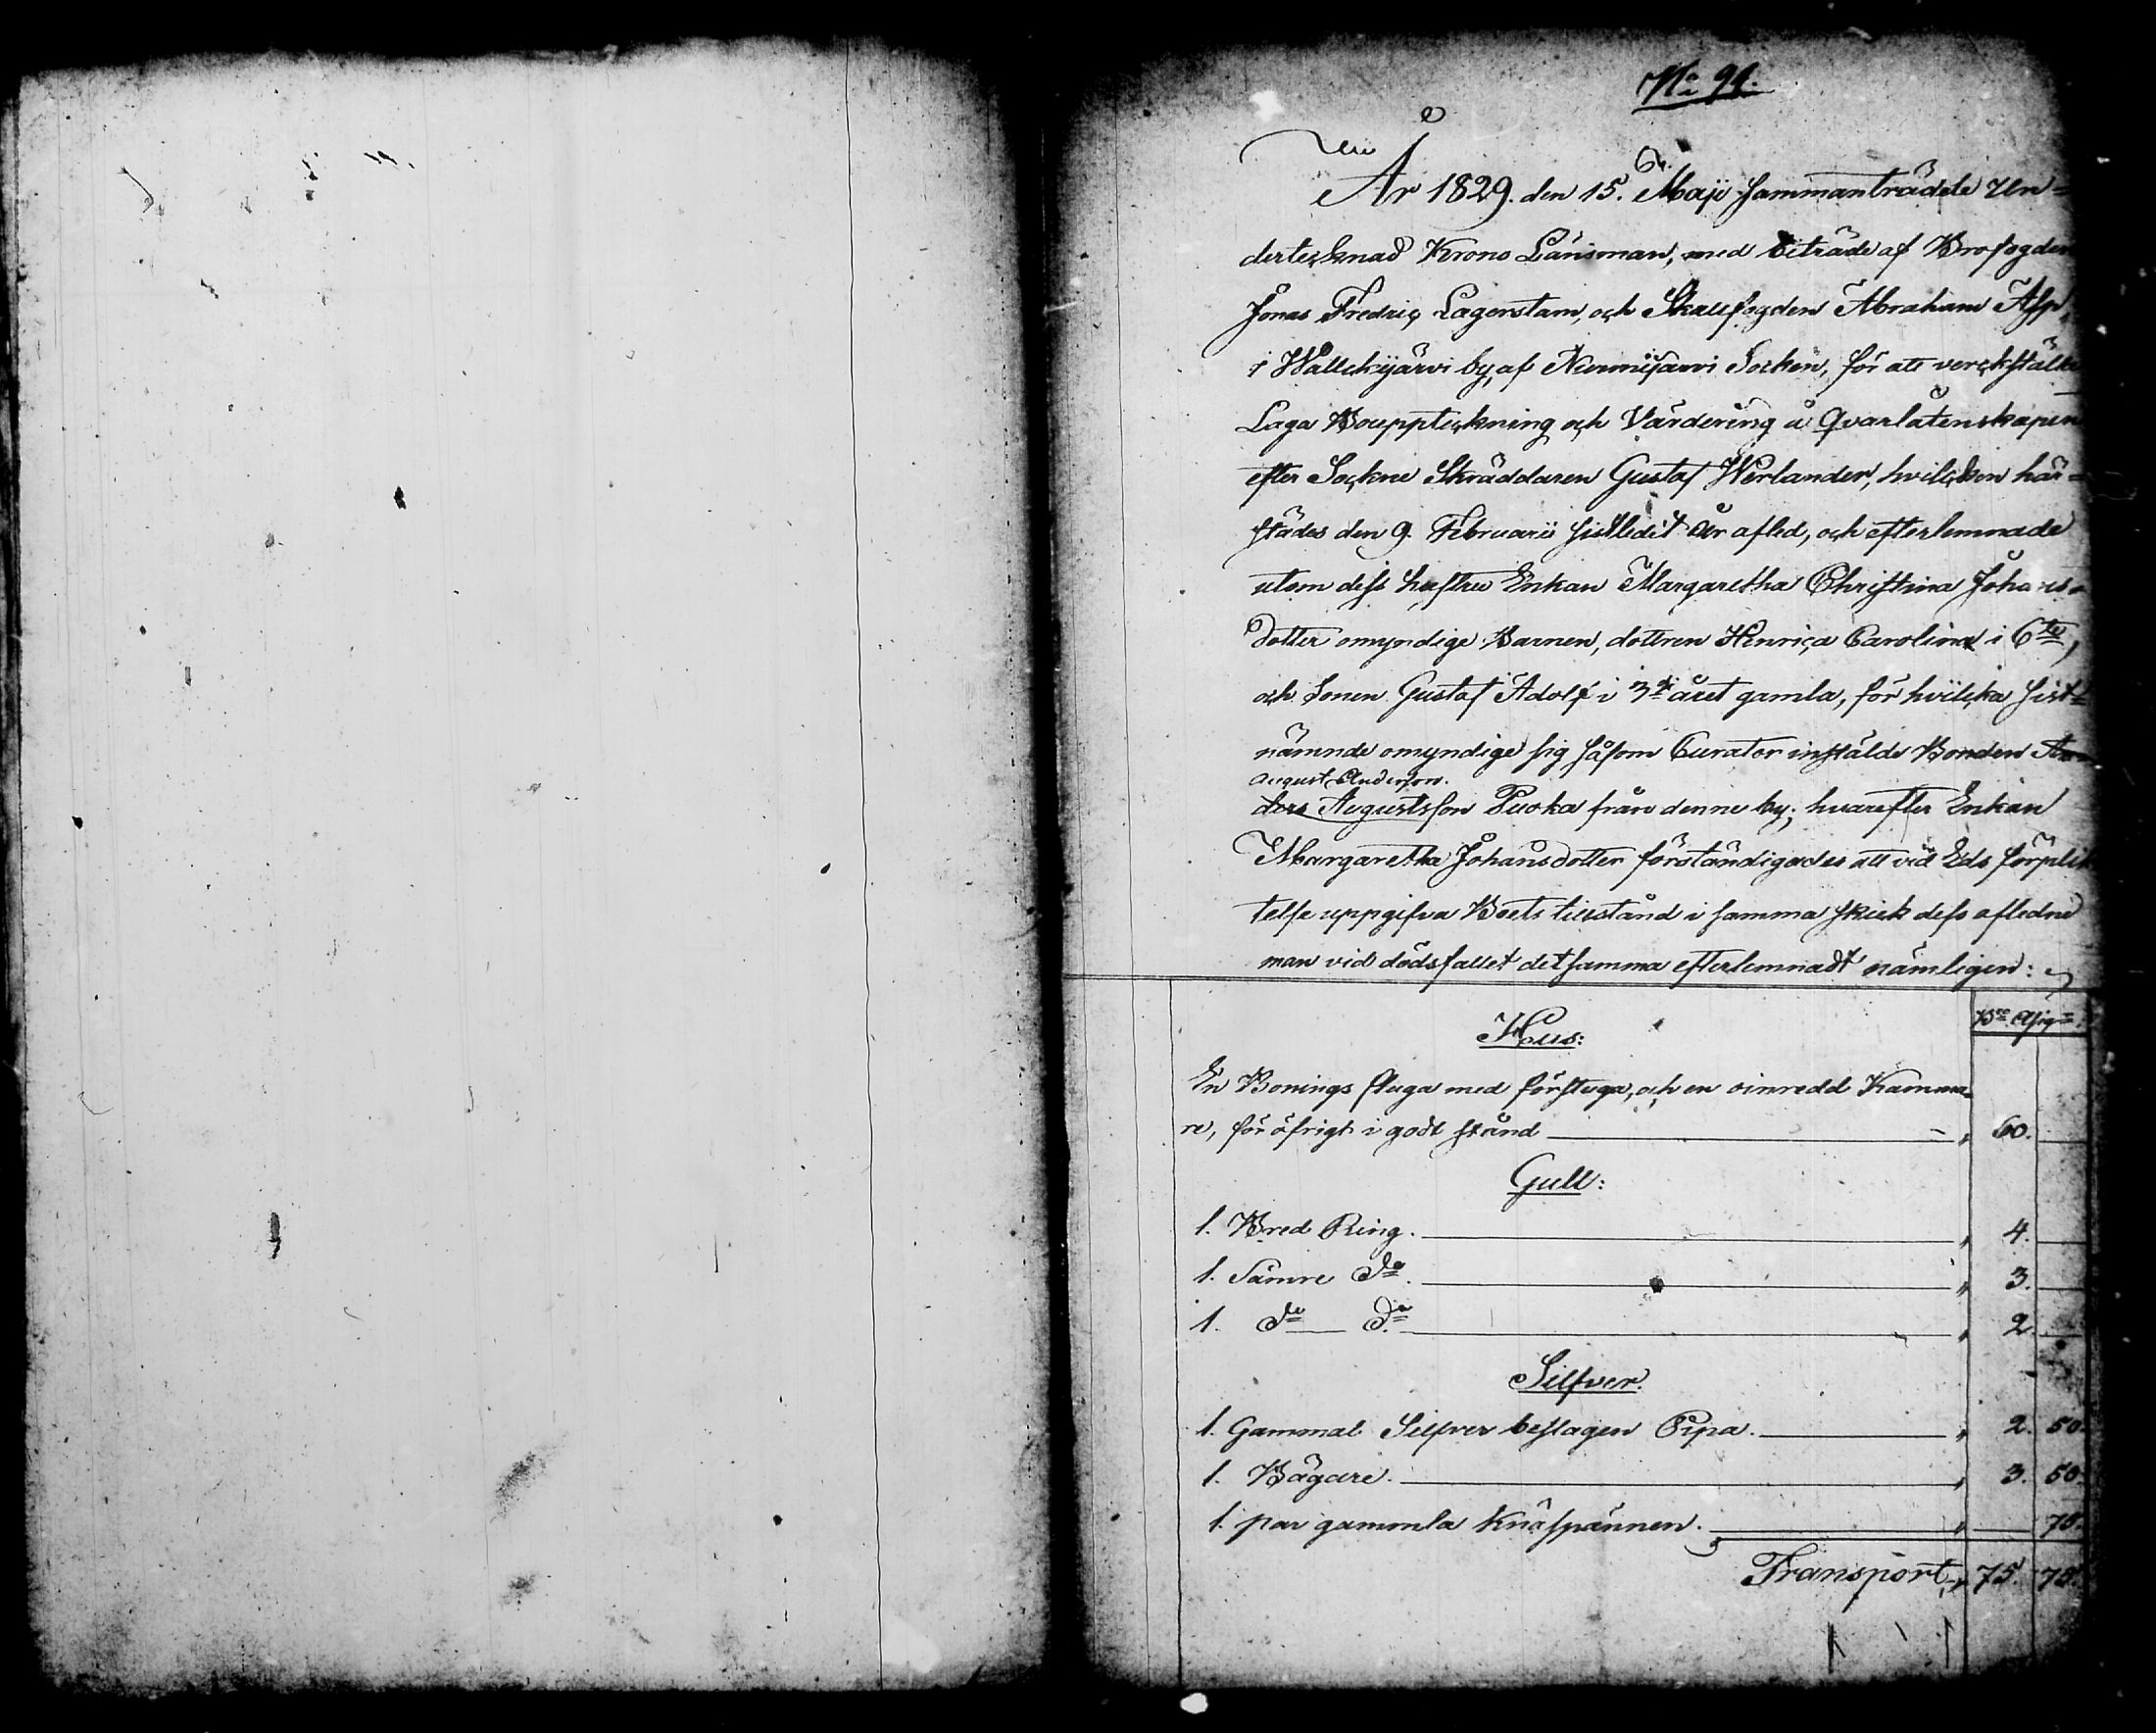 No 91.
År 1829. den 15. Maji sammanträdde Un=
dertecknad Krono Länsman, med biträde af Brofogden
Jonas Fredric Lagerstam, och Skallfogden Abraham Asp,
i Wallckijärvi by, af Nurmijärvi Socken, för att verckställa
Laga Bouppteckning och Värdering å Qvarlåtenskapen
efter Sockne Skräddaren Gustaf Werlander, hvilcken här=
städes den 9. Februarii sistledit år afled, och efterlemnade
utom dess hustru Enkan Margaretha Christina Johans=
dotter omyndige Barnen, dottren Henrica Carolina i 6te,
och Sonen Gustaf Adolf i 3di året gamla, för hvilcka sist=
nämnde omyndige sig såsom Curator instälde Bonden An=
August Andersson.
ders Augustsson Puoka från denne by; hvarefter Enkan
Margaretha Johansdotter förständigades att vid Eds förplik
telse uppgifva Boets tillstånd i samma skick dess aflednе
man vid dödsfallet detsamma efterlemnadt nämligen:
Hus: Bco Assig:
En Bonings stuga med förstuga, och en oinredd Kamma=
re, för öfrigt i godt stånd " 60.
Gull:
1. Bred Ring. " 4.
1. Sämre do. " 3.
1. do do. " 2.
Silfver.
1. Gammal Silfver beslagen Pipa. " 2. 50.
1. Bägare. " 3. 50.
1. par gammla Knäspännen. " 75.
Transport, " 75. 75.